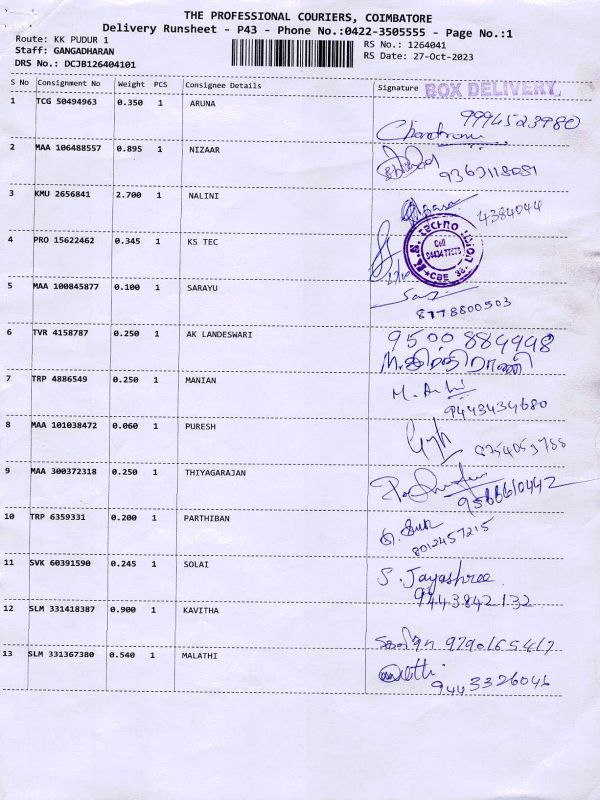 THE PROFESSIONAL COURIERS, COIMBATORE
Delivery Runsheet - P43 - Phone No.:0422-3505555 - Page No.:1
Route: KK PUDUR 1 RS No.: 1264041
Staff: GANGADHARAN RS Date: 27-Oct-2023
DRS No.: DCJB126404101
S No Consignment No Weight PCS Consignee Details Signature BOX DELIVERY
1 TCG 50494963 0.350 1 ARUNA
9994523980
2 MAA 106488557 0.895 1 NIZAAR
9363118081
3 KMU 2656841 2.700 1 NALINI
4384044
4 PRO 15622462 0.345 1 KS TEC
5 MAA 100845877 0.100 1 SARAYU
8778800503
6 TVR 4158787 0.250 1 AK LANDESWARI
9500884998
7 TRP 4886549 0.250 1 MANIAN
9443434680
8 MAA 101038472 0.060 1 PURESH
8754053788
9 MAA 300372318 0.250 1 THIYAGARAJAN
9566610442
10 TRP 6359331 0.200 1 PARTHIBAN
8012457215
11 SVK 60391590 0.245 1 SOLAI
S. Jayashree
9443842132
12 SLM 331418387 0.900 1 KAVITHA
9790165417
13 SLM 331367380 0.540 1 MALATHI
9443326046